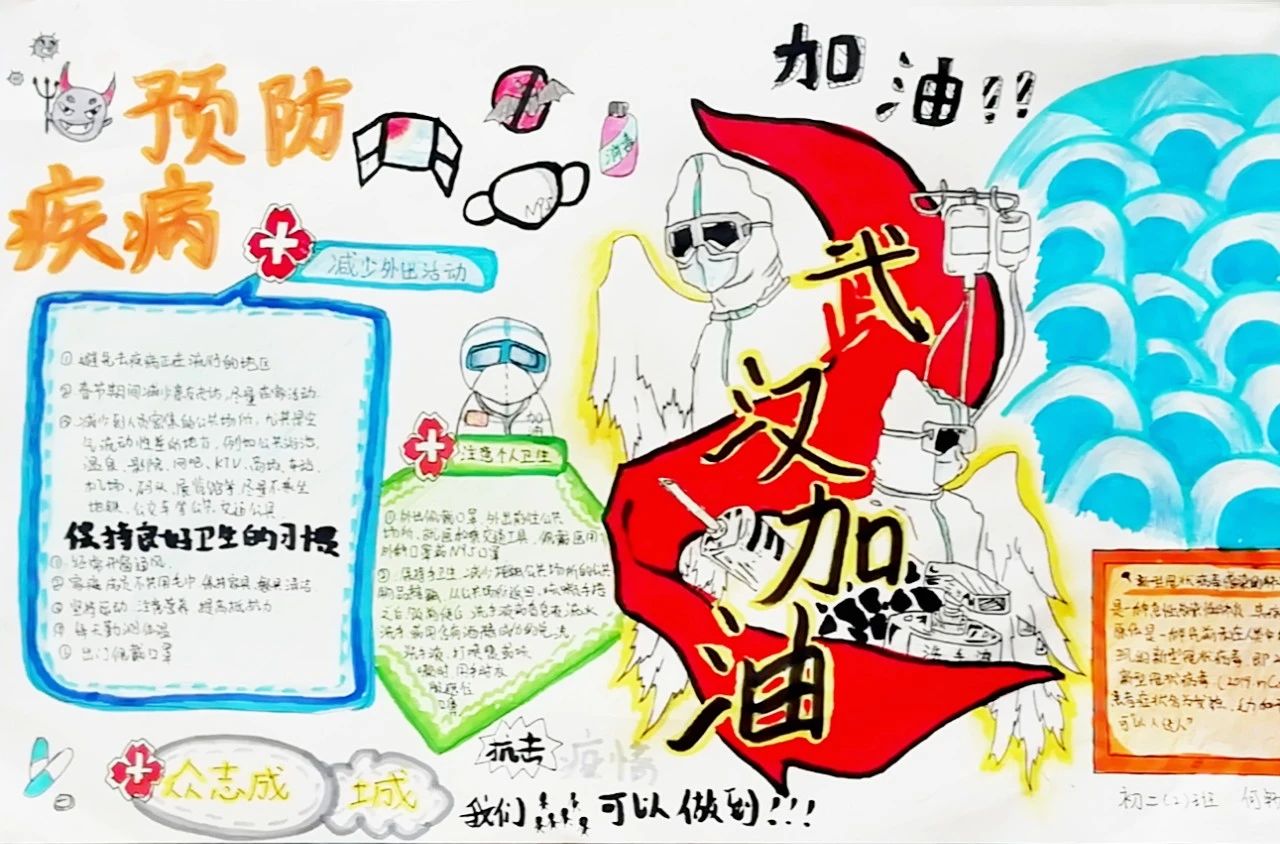 预防
疾病
加油!!
消毒
N95
减少外出活动
①避免去疾病正在流行的地区
②春节期间减少亲友走访,尽量在家活动.
③减少到人员密集的公共场所,尤其是空
气流动性差的地方,例如公共浴池,
温泉、影院、网吧、KTV、商场、车站、
机场、码头、展览馆等.尽量不乘坐
地铁、公交车等公共交通公具.
保持良好卫生的习惯
①经常开窗通风.
②家庭成员不共用毛巾,保持家具、餐具清洁
③坚持运动,注意营养,提高抵抗力
④每天勤测体温
⑤出门佩戴口罩
注意个人卫生
①外出佩戴口罩.外出前往公共
场所、就医和乘交通工具,佩戴医用
外科口罩或N95口罩
②保持手卫生.减少接触公共场所的公共
物品
之后
洗手液
武汉加油
洗手液
新型冠状病毒感染的
是一种急性
原体是一种先前未在人
现的新型冠状病毒,即
新型冠状病毒.(2019-nC
患者症状
可以人传人?
众志成城
抗击疫情
我们可以做到!!!
初二(2)班 何